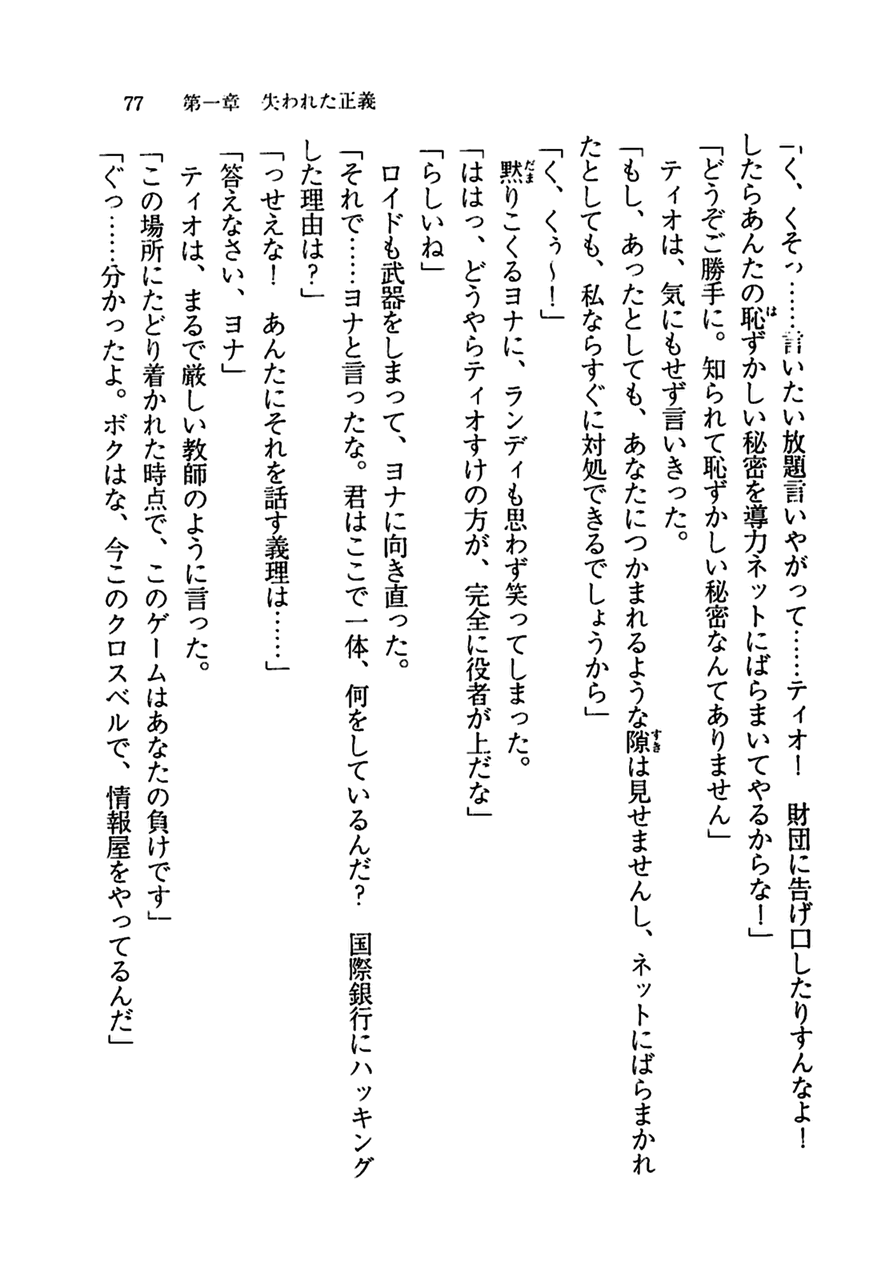 77　第一章　失われた正義
「く、くそっ……言いたい放題言いやがって……ティオ！　財団に告げ口したりすんなよ！
したらあんたの恥ずかしい秘密を導力ネットにばらまいてやるからな！」
「どうぞご勝手に。知られて恥ずかしい秘密なんてありません」
　ティオは、気にもせず言いきった。
「もし、あったとしても、あなたにつかまれるような隙は見せませんし、ネットにばらまかれ
たとしても、私ならすぐに対処できるでしょうから」
「く、くぅ～！」
　黙りこくるヨナに、ランディも思わず笑ってしまった。
「ははっ、どうやらティオすけの方が、完全に役者が上だな」
「らしいね」
　ロイドも武器をしまって、ヨナに向き直った。
「それで……ヨナと言ったな。君はここで一体、何をしているんだ？　国際銀行にハッキング
した理由は？」
「っせえな！　あんたにそれを話す義理は……」
「答えなさい、ヨナ」
　ティオは、まるで厳しい教師のように言った。
「この場所にたどり着かれた時点で、このゲームはあなたの負けです」
「ぐっ……分かったよ。ボクはな、今このクロスベルで、情報屋をやってるんだ」